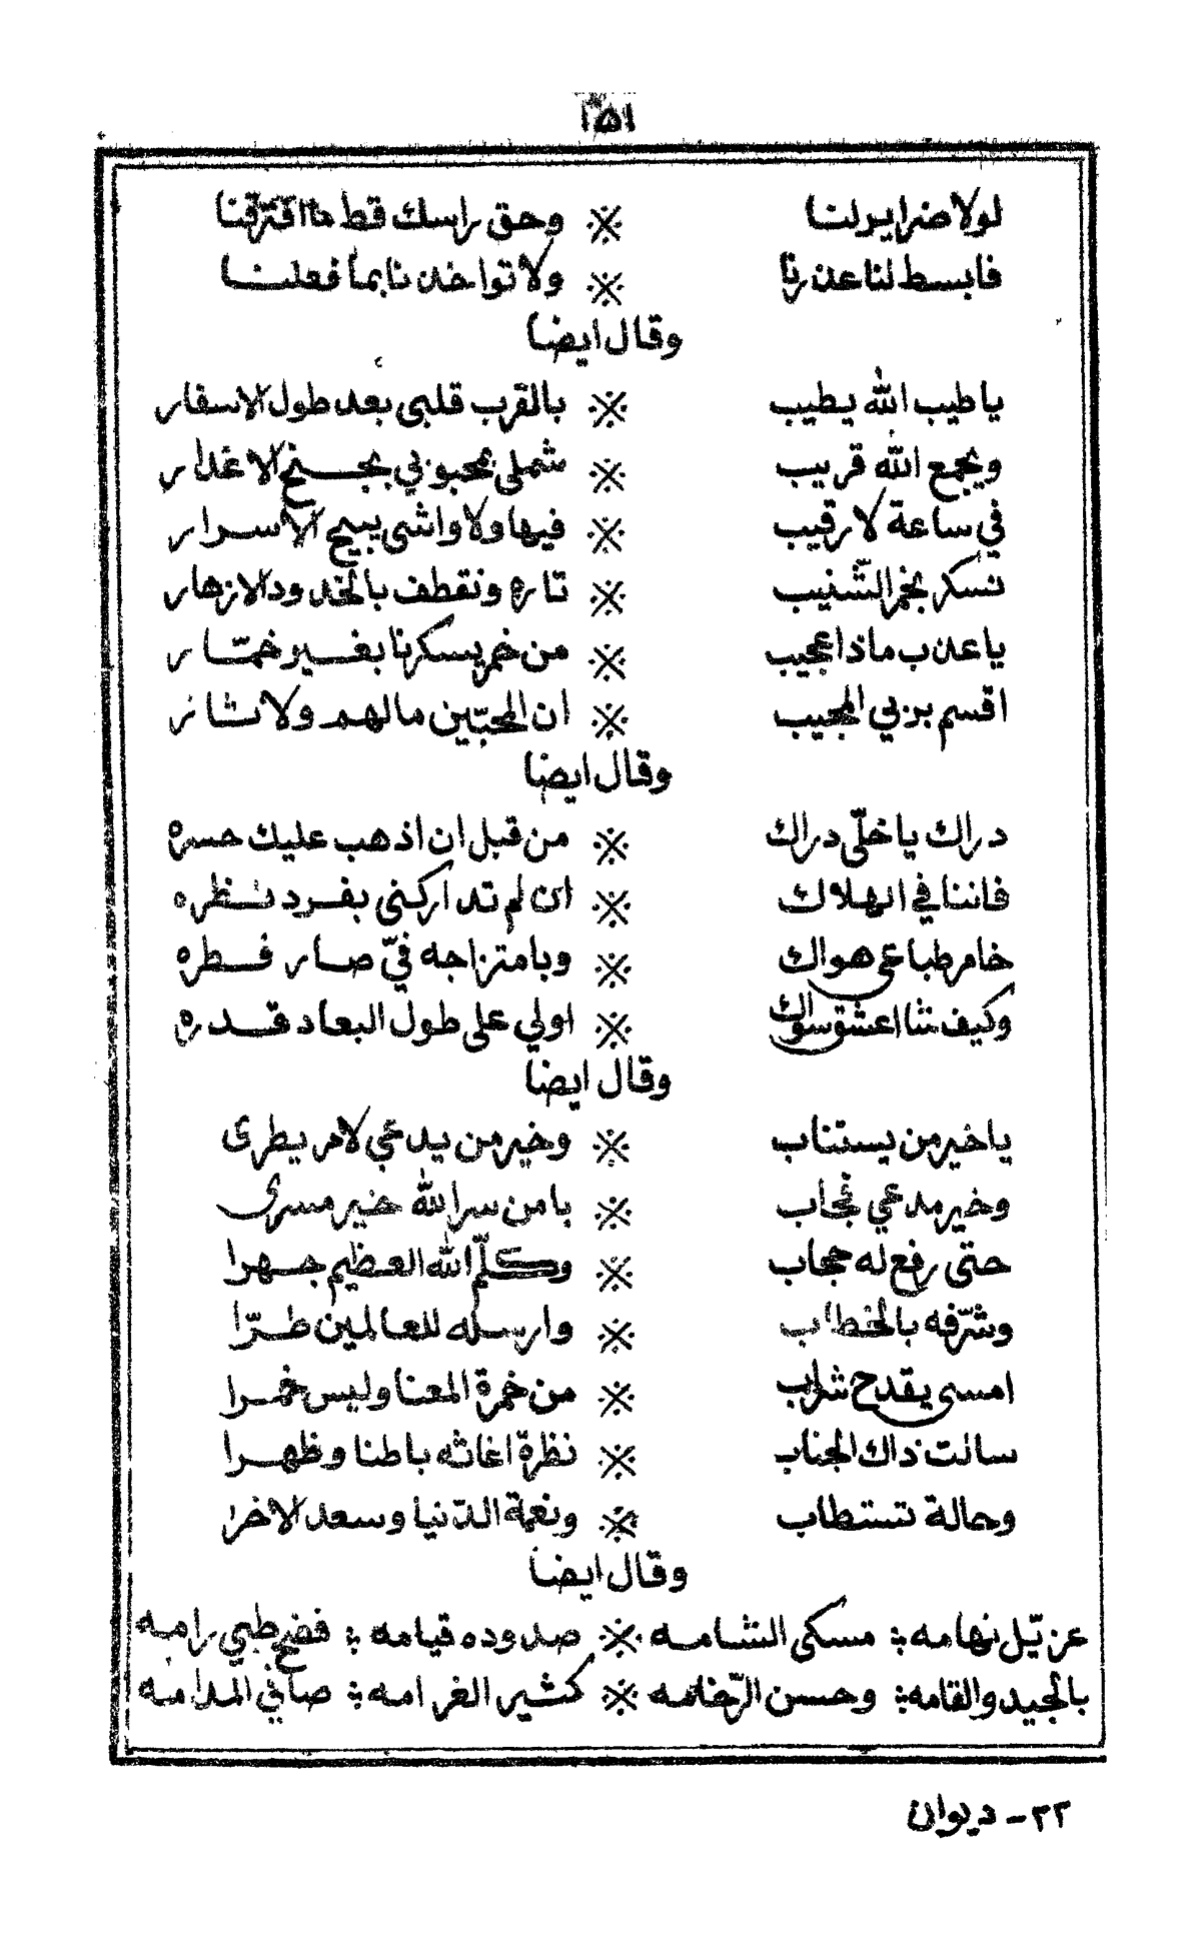 ١٥١
لولا ضراير لنا ※ وحق راسك قط ما افترقنا
فابسط لنا عذرنا ※ ولا تواخذنا بما فعلنا
وقال ايضا
يا طيب الله يطيب ※ بالقرب قلبي بعد طول الاسفار
ويجمع الله قريب ※ شملي بمحبوبي بجنح الاغدار
في ساعة لا رقيب ※ فيها ولا واشي يبيح الاسرار
نسكر بخمر الشنيب ※ تاره ونقطف بالخدود الازهار
يا عذب ماذا عجيب ※ من خمر يسكرنا بغير خمّار
اقسم بربي المجيب ※ ان المحبّين مالهم ولا ثار
وقال ايضا
دراك يا خلّي دراك ※ من قبل ان اذهب عليك حسره
فاننا في الهلاك ※ ان لم تداركني بفرد نظره
خامر طباعي هواك ※ وبامتزاجه فيّ صار فطره
وكيف شا اعشق سواك ※ اولي على طول البعاد قدره
وقال ايضا
يا خير من يستناب ※ وخير من يدعي لامر يطرى
وخير مدعي مجاب ※ يا من سرا لله خير مسرى
حتى رفع له حجاب ※ وكلّم الله العظيم جهرا
وشرّفه بالخطاب ※ وارسله للعالمين طرّا
امسى يقدح شراب ※ من خمرة المعنا وليس خمرا
سالت ذاك الجناب ※ نظرة اغاثه باطنا وظهرا
وحالة تستطاب ※ ونعمة الدّنيا وسعد الاخرا
وقال ايضا
عزيّل نهامه ؞ مسكي الشامه ※ صدوده قيامه ؞ فضح ظبي رامه
بالجيد والقامه ؞ وحسن الرّخامه ※ كثير الغرامه ؞ صافي المدامه
٢٢ - ديوان